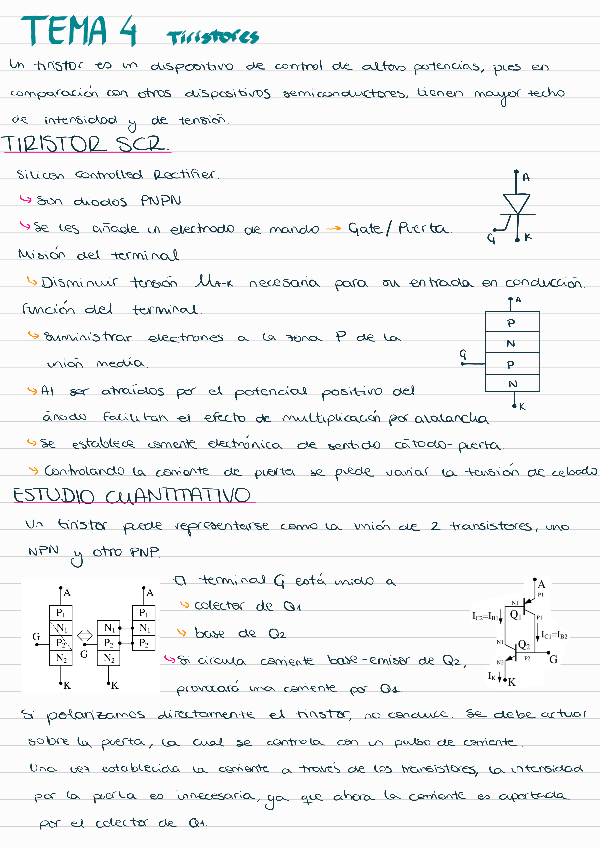 TEMA 4 Tiristores
Un tiristor es un dispositivo de control de altas potencias, pues en
comparación con otros dispositivos semiconductores, tienen mayor techo
de intensidad y de tensión.
TIRISTOR SCR.
Silicon Controlled Rectifier.
↳ Son diodos PNPN
↳ Se les añade un electrodo de mando → Gate / Puerta.
A
G
K
Misión del terminal
↳ Disminuir tensión UA-K necesaria para su entrada en conducción.
Función del terminal.
↳ Suministrar electrones a la zona P de la
unión media.
↳ Al ser atraídos por el potencial positivo del
ánodo facilitan el efecto de multiplicación por avalancha
↳ Se establece corriente electrónica de sentido cátodo-puerta
↳ Controlando la corriente de puerta se puede variar la tensión de cebado
A
P
N
G
P
N
K
ESTUDIO CUANTITATIVO
Un tiristor puede representarse como la unión de 2 transistores, uno
NPN y otro PNP.
A A
P1 P1
N1 N1 N1
G P2 G P2 P2
N2 N2
K K
El terminal G está unido a
↳ colector de Q1
↳ base de Q2
↳ Si circula corriente base-emisor de Q2,
provocará una corriente por Q1
A
P1
N1
IC2=IB1 Q1
P2
IC1=IB2
N1
Q2
P2
G
N2
IK K
Si polarizamos directamente el tiristor, no conduce. Se debe actuar
sobre la puerta, la cual se controla con un pulso de corriente.
Una vez establecida la corriente a través de los transistores, la intensidad
por la puerta es innecesaria, ya que ahora la corriente es aportada
por el colector de Q1.